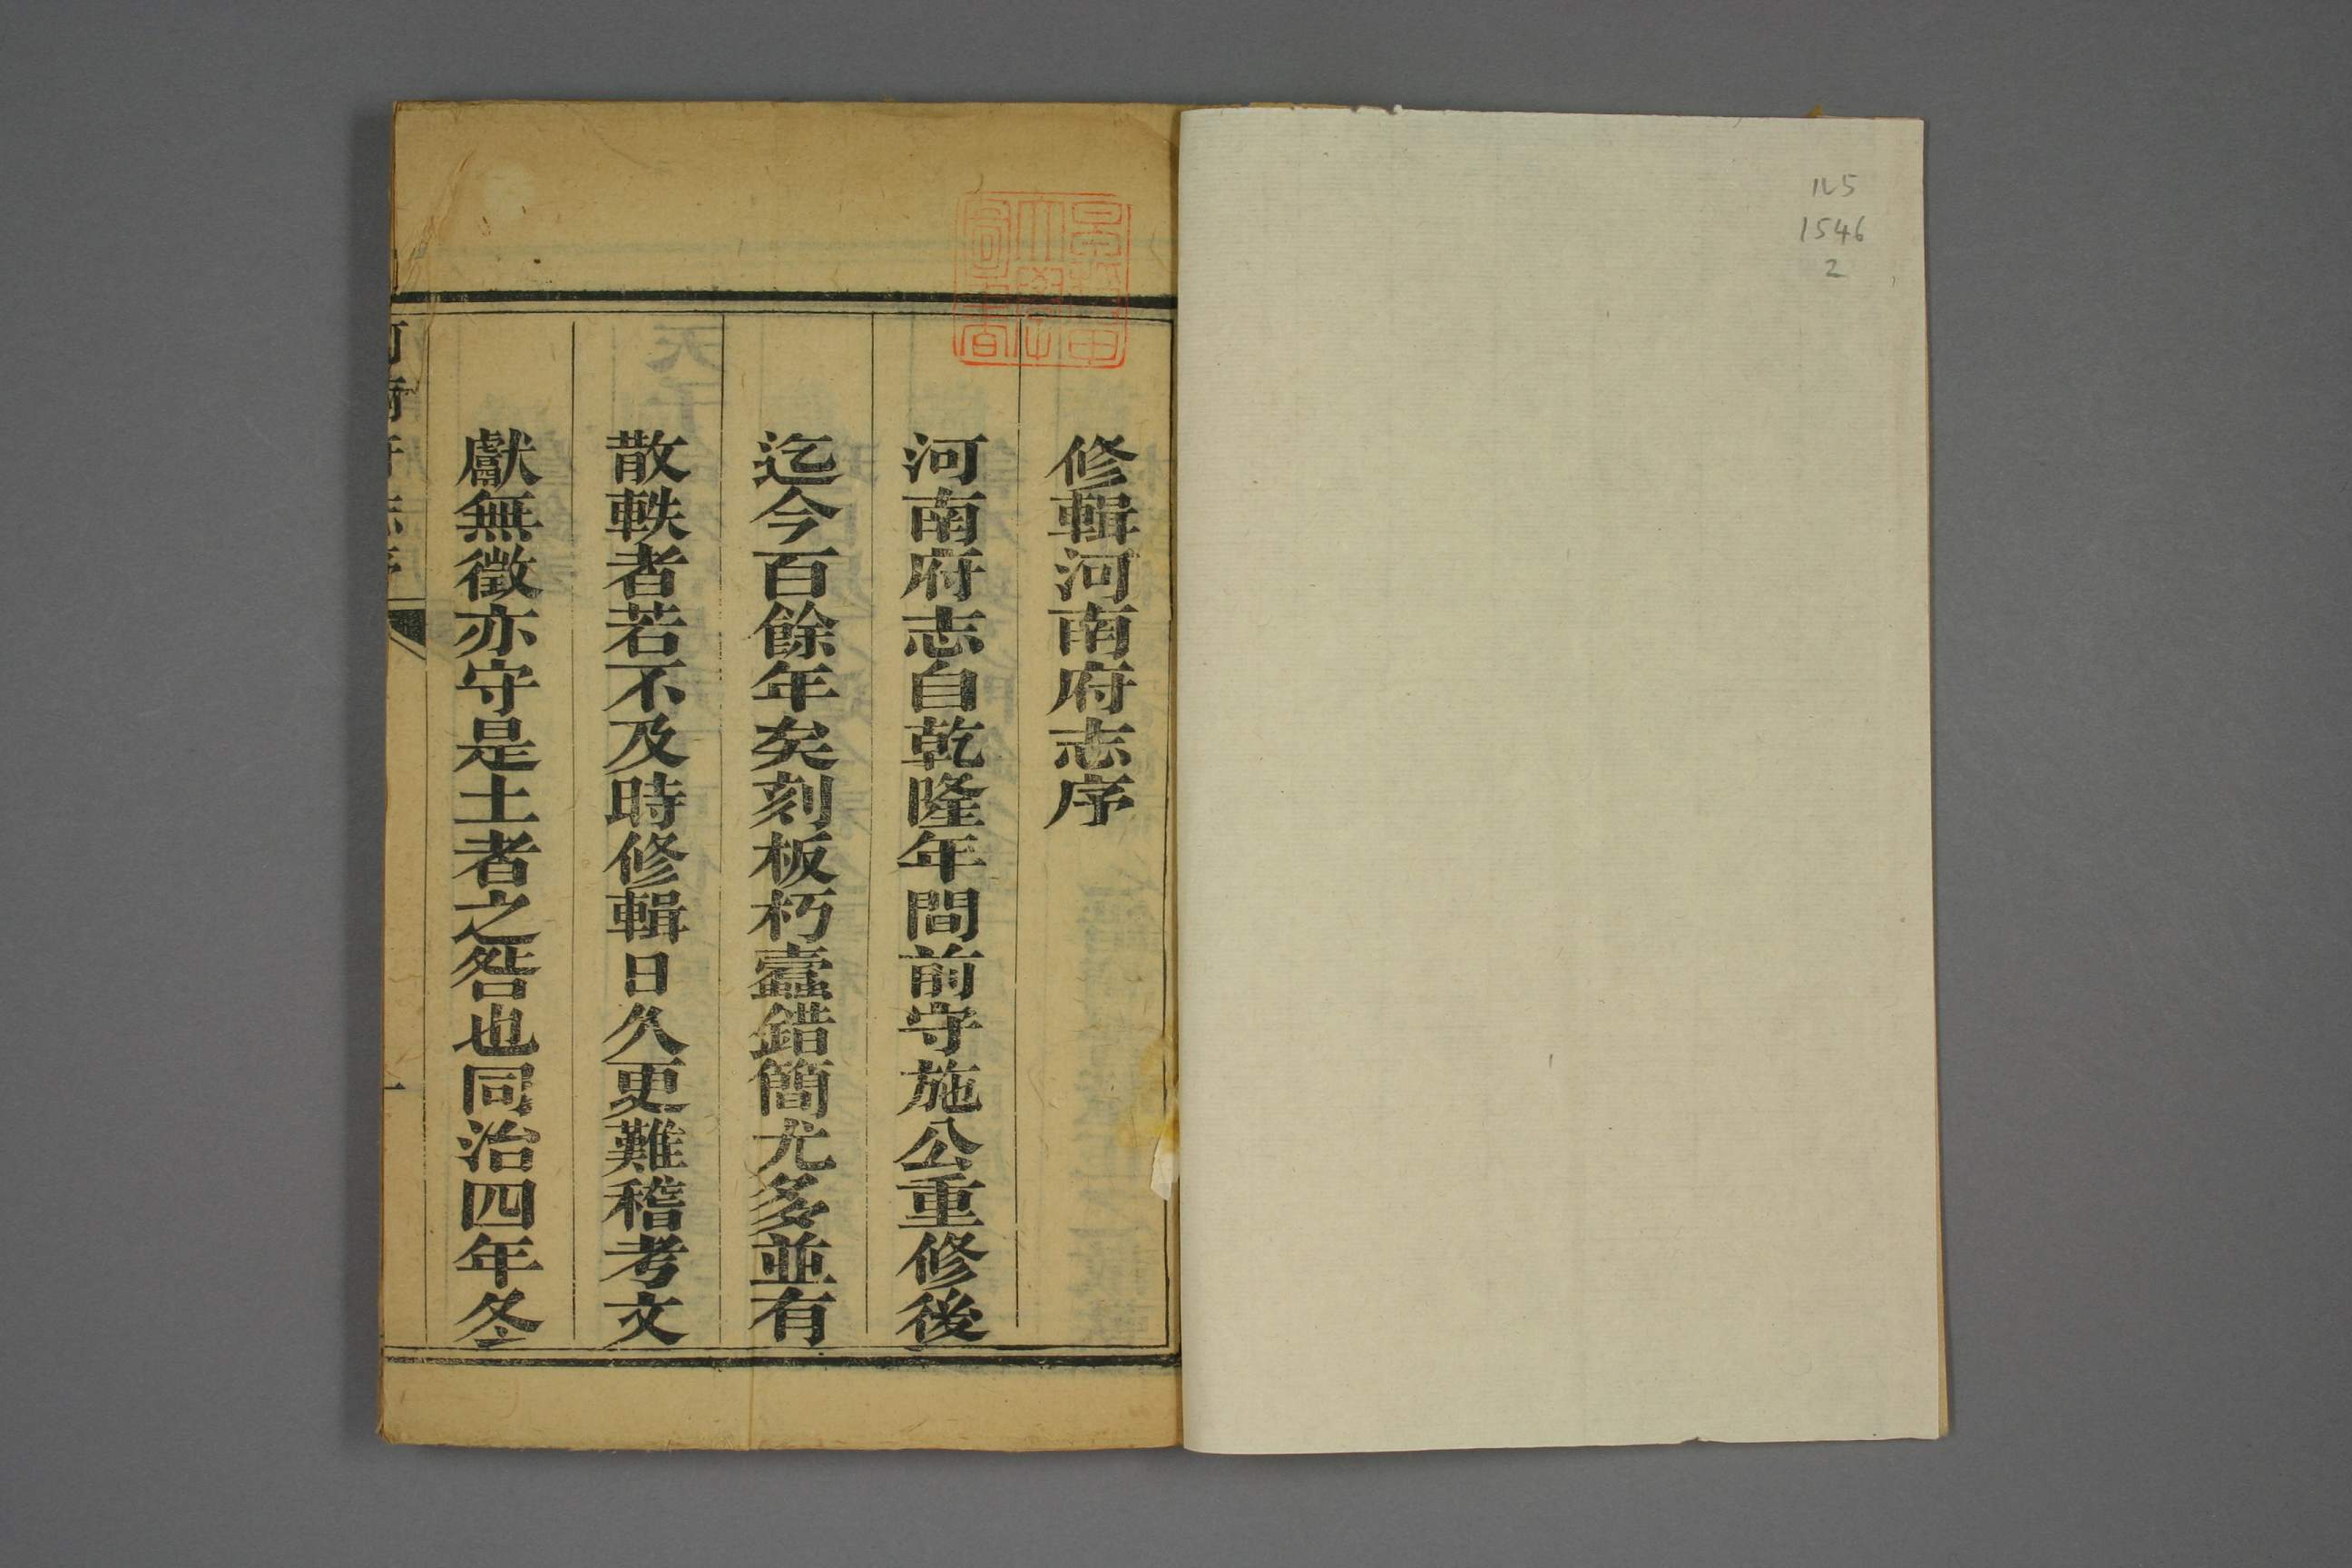 ル5
1546
2
早稻田
大學
圖書
修輯河南府志序
河南府志自乾隆年間前守施公重修後
迄今百餘年矣刻板朽蠹錯簡尤多並有
散軼者若不及時修輯日久更難稽考文
獻無徵亦守是土者之咎也同治四年冬
河南府志序
一